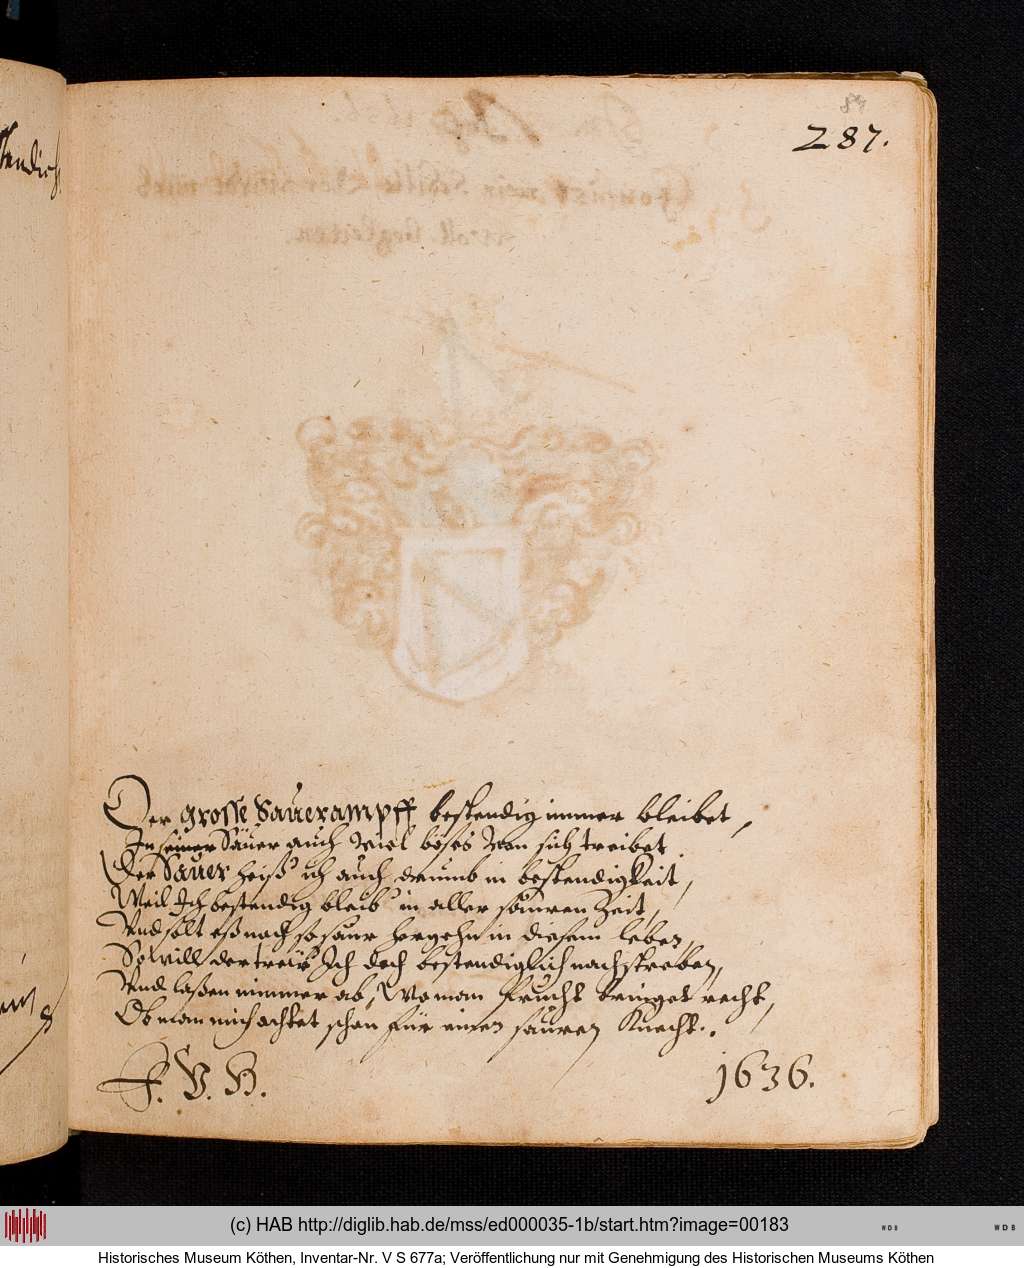 287.
Der grosse Sauerampff bestendig immer bleibet,
In seiner Säuer auch viel böses von sich treibet
Der Sauer heiß ich auch drumb in bestendigkeit,
Weil Ich bestendig bleib in aller sauren Zeit,
Vnd solt eß noch so saur hergehn in diesem leben,
So will der treüw Ich doch bestendiglich nachstreben,
Vnd laßen nimmer ab, Wo man frucht bringet recht,
Ob man mich achtet schon für einen sauren Knecht.
F. V. H.
1636.
(c) HAB http://diglib.hab.de/mss/ed000035-1b/start.htm?image=00183
WDB
WDB
Historisches Museum Köthen, Inventar-Nr. V S 677a; Veröffentlichung nur mit Genehmigung des Historischen Museums Köthen